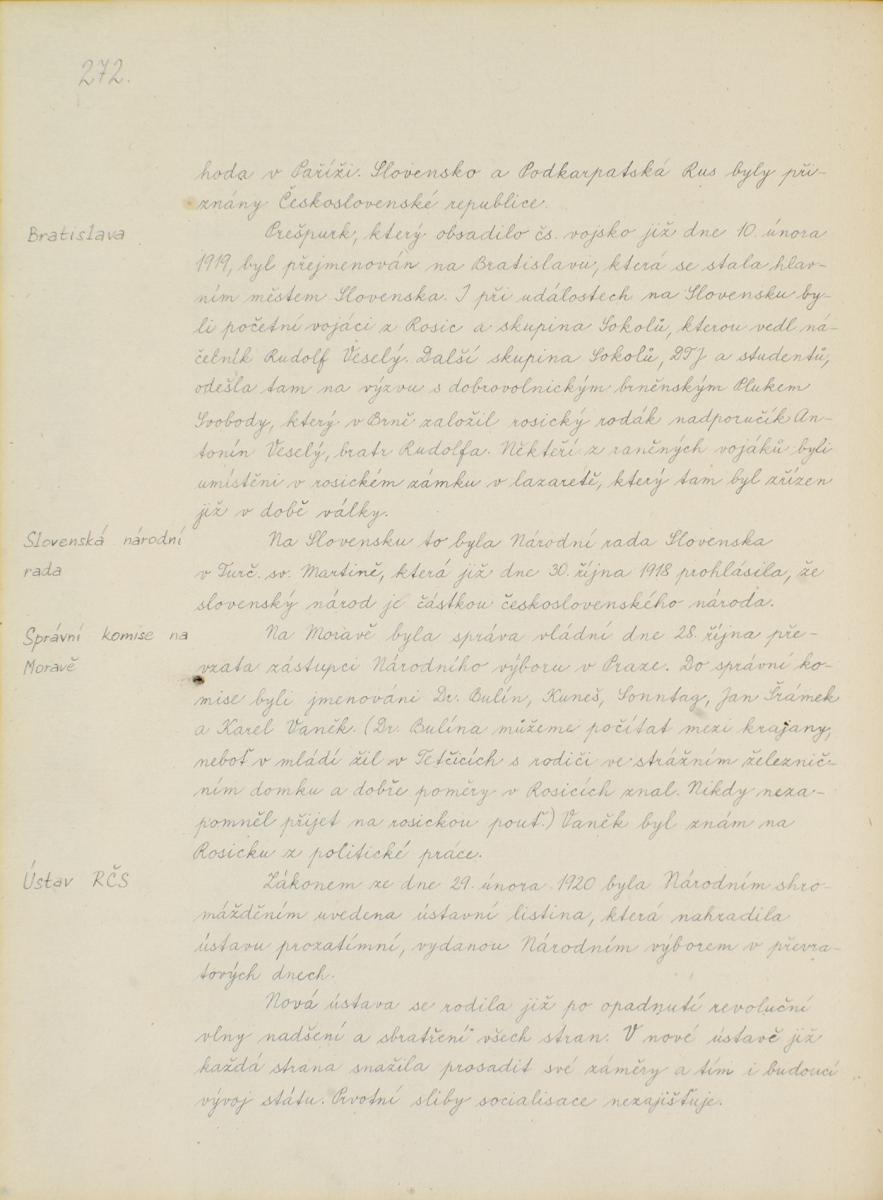 272.
hoda v Paříži. Slovensko a Podkarpatská Rus byly při-
znány Československé republice.
Bratislava
Prešpurk, který obsadilo čs. vojsko již dne 10. února
1919, byl přejmenován na Bratislavu, která se stala hlav-
ním městem Slovenska. I při událostech na Slovensku by-
li početní vojáci z Rosic a skupina Sokolů, kterou vedl ná-
čelník Rudolf Veselý. Další skupina Sokolů, DTJ a studentů,
odešla tam na výzvu s dobrovolnickým brněnským Plukem
Svobody, který v Brně založil rosický rodák nadporučík An-
tonín Veselý, bratr Rudolfa. Někteří z raněných vojáků byli
umístěni v rosickém zámku v lazaretě, který tam byl zřízen
již v době války.
Slovenská národní
rada
Na Slovensku to byla Národní rada Slovenska
v Turč. sv. Martině, která již dne 30. října 1918 prohlásila, že
slovenský národ je částkou československého národa.
Správní komise na
Moravě
Na Moravě byla správa vládní dne 28. října pře-
vzata zástupci Národního výboru v Praze. Do správní ko-
mise byli jmenováni Dr. Bulín, Kuneš, Sonntag, Jan Šrámek
a Karel Vaněk. (Dr. Bulína můžeme počítat mezi krajany,
neboť v mládí žil v Tetčicích s rodiči ve strážním železnič-
ním domku a dobře poměry v Rosicích znal. Nikdy neza-
pomněl přijet na rosickou pouť.) Vaněk byl znám na
Rosicku z politické práce.
Ústav RČS
Zákonem ze dne 29. února 1920 byla Národním shro-
mážděním uvedena ústavní listina, která nahradila
ústavu prozatímní, vydanou Národním výborem v převra-
tových dnech.
Nová ústava se rodila již po opadnutí revoluční
vlny nadšení a sbratření všech stran. V nové ústavě již
každá strana snažila prosadit své záměry a tím i budoucí
vývoj státu. Prvotní sliby socialisace nezajišťuje.